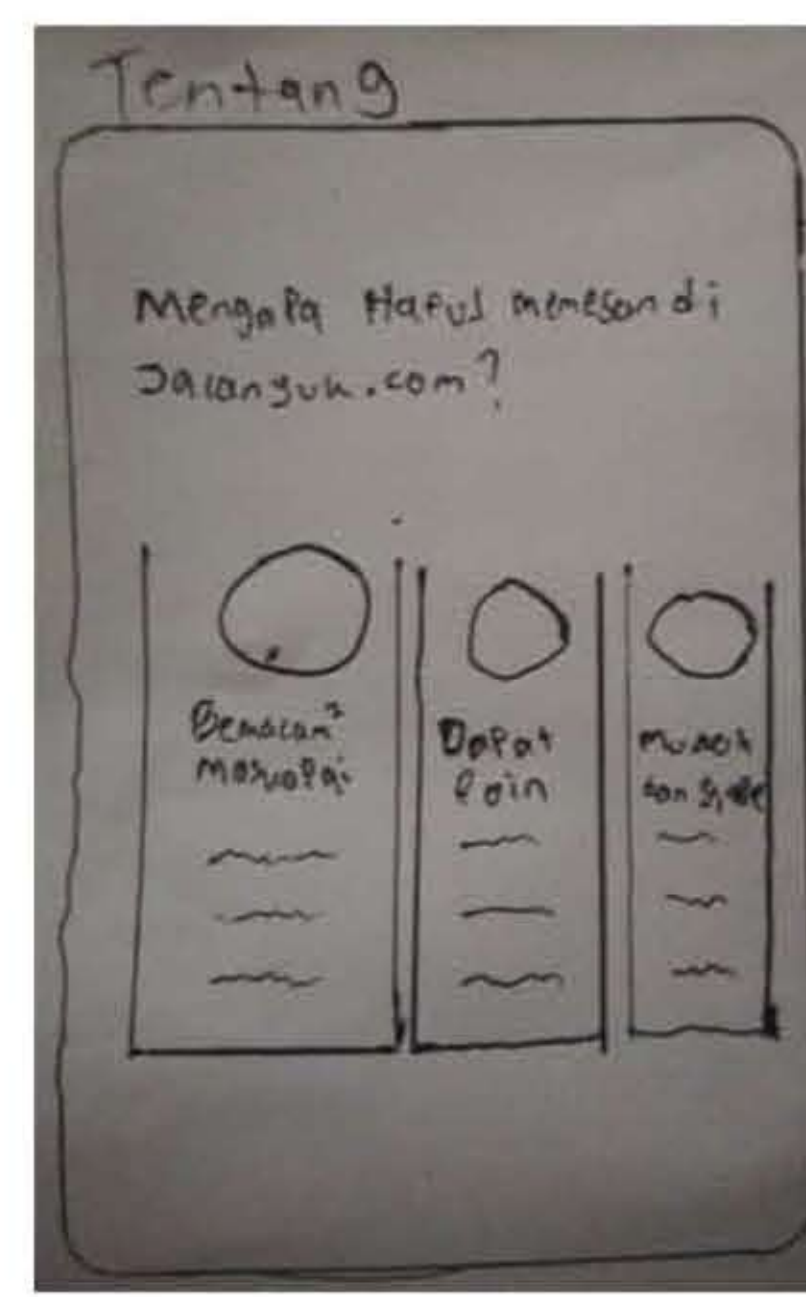 Tentang
Mengapa Harus memesan di
Jalanyuk.com?
Bemacam²
Maskapai
Dapat
Poin
Mudah
dan